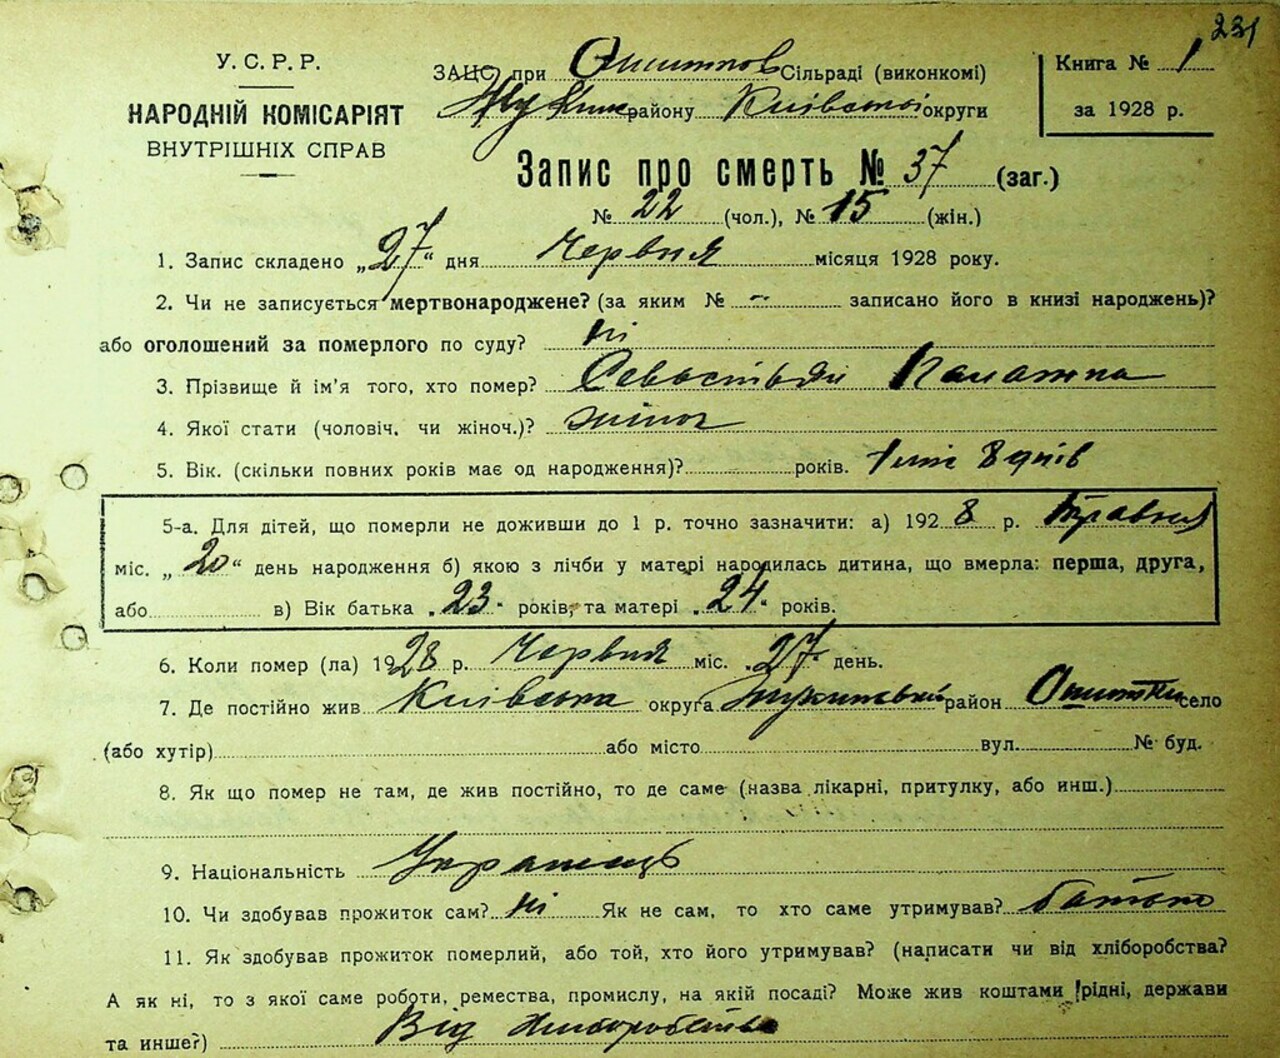 231
У. С. Р. Р.
НАРОДНІЙ КОМІСАРІЯТ
ВНУТРІШНІХ СПРАВ
ЗАЦС при Ошитков Сільраді (виконкомі)
району Київської округи
Книга № 1
за 1928 р.
Запис про смерть № 37 (заг.)
№ 22 (чол.), № 15 (жін.)
1. Запис складено „27“ дня Червня місяця 1928 року.
2. Чи не записується мертвонароджене? (за яким № - записано його в книзі народжень)?
або оголошений за померлого по суду? ні
3. Прізвище й ім'я того, хто помер? Севастьян Палажка
4. Якої стати (чоловіч. чи жіноч.)? жіноч
5. Вік. (скільки повних років має од народження)? років. 1 міс 8 днів
5-а. Для дітей, що померли не доживши до 1 р. точно зазначити: а) 1928 р. Травня
міс. „20“ день народження б) якою з лічби у матері народилась дитина, що вмерла: перша, друга,
або в) Вік батька „23“ років, та матері „24“ років.
6. Коли помер (ла) 1928 р. Червня міс. „27“ день.
7. Де постійно жив Київська округа район Ошитки село
(або хутір) або місто вул. № буд.
8. Як що помер не там, де жив постійно, то де саме (назва лікарні, притулку, або инш.)
9. Національність Українець
10. Чи здобував прожиток сам? ні Як не сам, то хто саме утримував? батько
11. Як здобував прожиток померлий, або той, хто його утримував? (написати чи від хліборобства?
А як ні, то з якої саме роботи, ремества, промислу, на якій посаді? Може жив коштами рідні, держави
та инше?) Від хліборобства